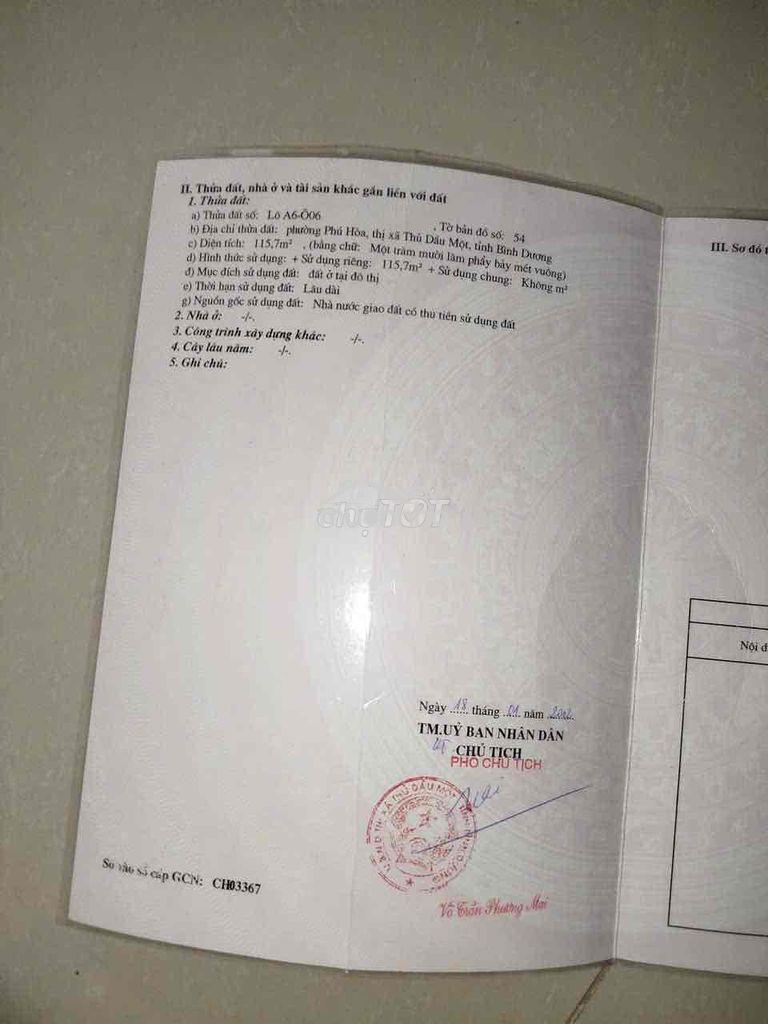 II. Thửa đất, nhà ở và tài sản khác gắn liền với đất
1. Thửa đất:
a) Thửa đất số: Lô A6-Ô06 , Tờ bản đồ số: 54
b) Địa chỉ thửa đất: phường Phú Hòa, thị xã Thủ Dầu Một, tỉnh Bình Dương
c) Diện tích: 115,7m² , (bằng chữ: Một trăm mười lăm phẩy bảy mét vuông)
d) Hình thức sử dụng: + Sử dụng riêng: 115,7m² + Sử dụng chung: Không m²
đ) Mục đích sử dụng đất: đất ở tại đô thị
e) Thời hạn sử dụng đất: Lâu dài
g) Nguồn gốc sử dụng đất: Nhà nước giao đất có thu tiền sử dụng đất
2. Nhà ở: -/-.
3. Công trình xây dựng khác: -/-.
4. Cây lâu năm: -/-.
5. Ghi chú:
III. Sơ đồ t
chợTỐT
Nội d
Ngày 18 tháng 01 năm 2012.
TM.UỶ BAN NHÂN DÂN
KT CHỦ TỊCH
PHÓ CHỦ TỊCH
U.B.N.D THỊ XÃ THỦ DẦU MỘT
Võ Trần Phương Mai
Số vào sổ cấp GCN: CH03367